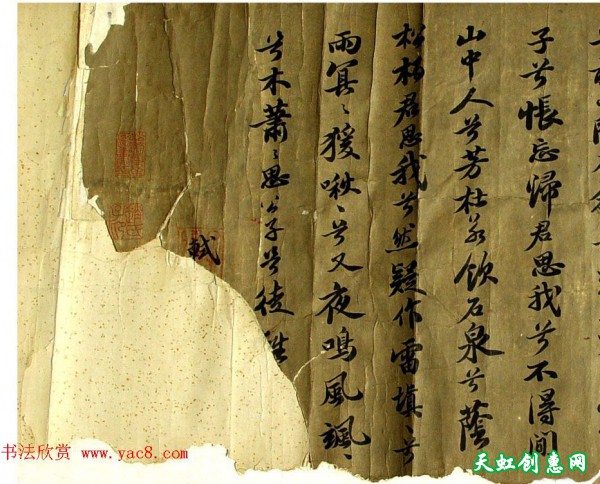 子兮悵忘歸君思我兮不得間
山中人兮芳杜若飲石泉兮蔭
松柏君思我兮然疑作雷填〻兮
雨冥〻猨啾〻兮又夜鳴風颯〻
兮木蕭〻思公子兮徒
軾
书法欣赏 www.yac8.com
天虹创惠网